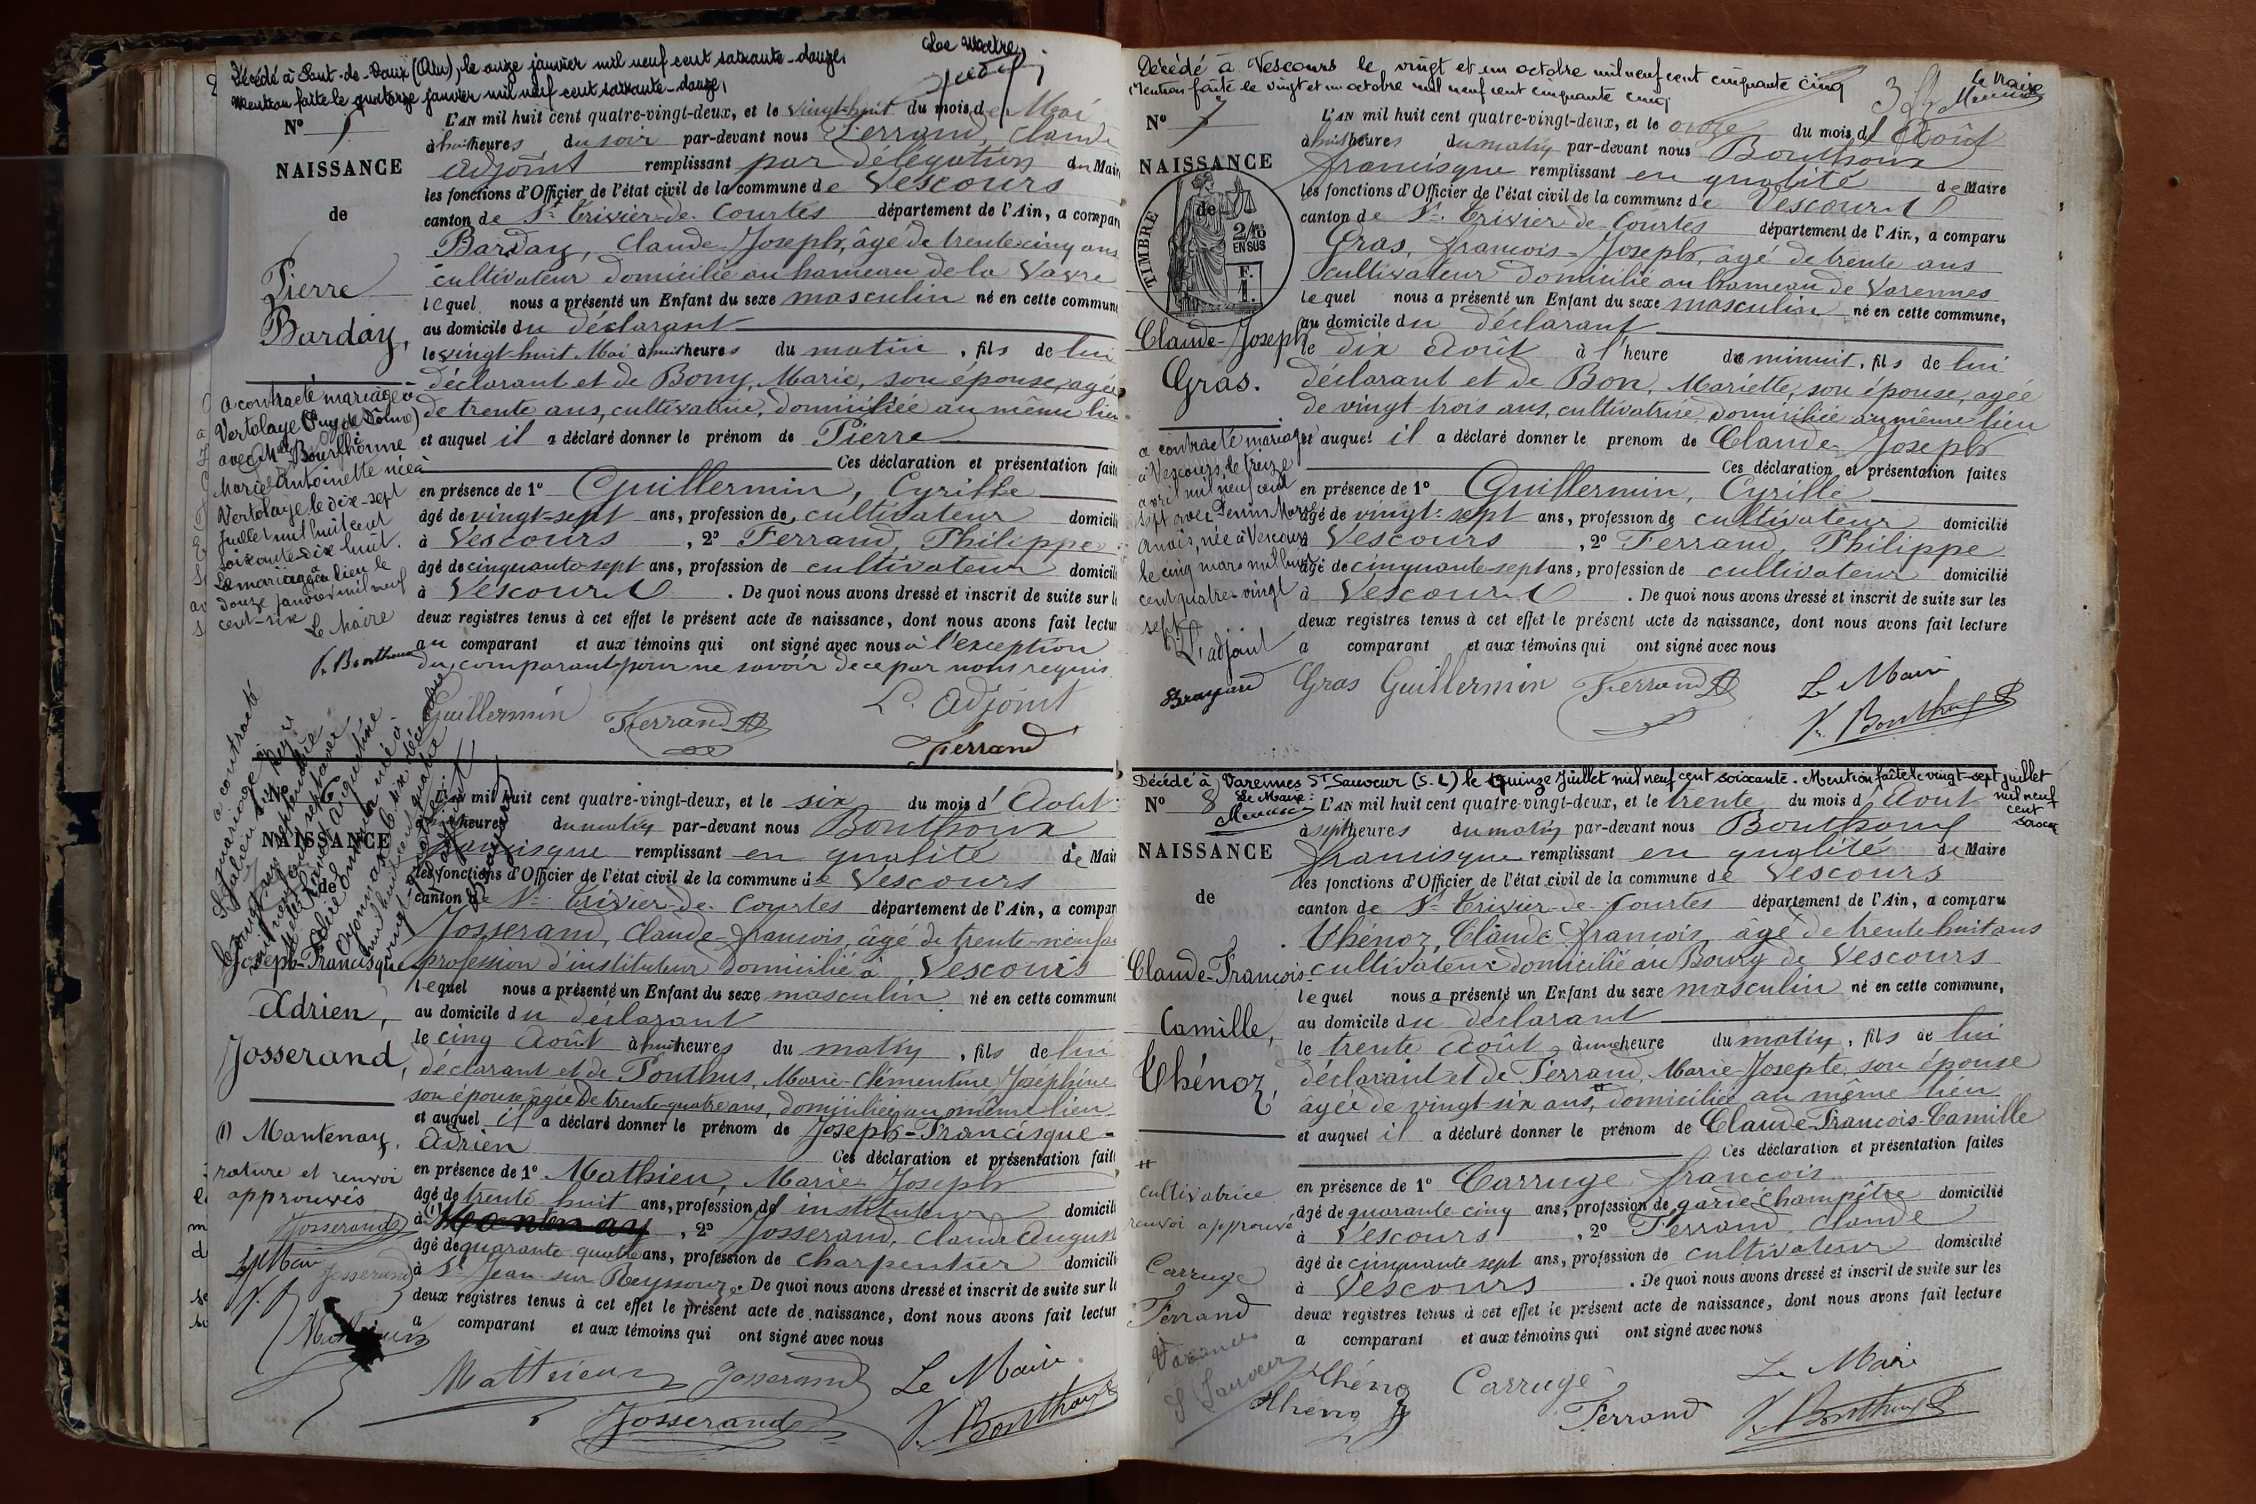 Décédé à Pont-de-Vaux (Ain), le onze janvier mil neuf cent soixante-douze,
Mention faite le quatorze janvier mil neuf cent soixante-douze,
Le Maire,
N°
NAISSANCE
de
Pierre
Barday,
L'AN mil huit cent quatre-vingt-deux, et le vingt-huit du mois de Mai
à huit heures du soir par-devant nous Ferrand, Claude
adjoint remplissant par délégation du Mair
les fonctions d'Officier de l'état civil de la commune de Vescours
canton de St Trivier-de-Courtes département de l'Ain, a compar
Barday, Claude-Joseph, âgé de trente-cinq ans
cultivateur domicilié au hameau de la Vavre
lequel nous a présenté un Enfant du sexe masculin né en cette commune
au domicile du déclarant
le vingt-huit Mai à huit heures du matin, fils de lui
déclarant et de Bony, Marie, son épouse, agée
de trente ans, cultivatrice, domiciliée au même lieu
et auquel il a déclaré donner le prénom de Pierre
Ces déclaration et présentation fait
en présence de 1° Guillermin, Cyrille
âgé de vingt-sept ans, profession de cultivateur domicili
à Vescours, 2° Ferrand, Philippe
âgé de cinquante-sept ans, profession de cultivateur domicili
à Vescours. De quoi nous avons dressé et inscrit de suite sur l
deux registres tenus à cet effet le présent acte de naissance, dont nous avons fait lectur
au comparant et aux témoins qui ont signé avec nous à l'exception
du comparant pour ne savoir de ce par nous requis.
Guillermin Ferrand L'adjoint
Ferrand
a contracté mariage à
Vertolaye (Puy de Dôme)
avec Mlle Bourlhonne
Marie Antoinette née à
Vertolaye le dix-sept
juillet mil huit cent
soixante-dix huit.
Le mariage a eu lieu le
douze janvier mil neuf
cent-six
Le Maire
V. Bouthoux
a contracté
mariage à
NAISSANCE
de
Joseph-Francisque
Adrien,
Josserand,
L'AN mil huit cent quatre-vingt-deux, et le six du mois d'Août
heures du matin par-devant nous Bouthoux
francisque remplissant en qualité de Mair
les fonctions d'Officier de l'état civil de la commune de Vescours
canton de St Trivier-de-Courtes département de l'Ain, a compar
Josserand, Claude-françois, âgé de trente-neuf a
profession d'instituteur domicilié à Vescours
lequel nous a présenté un Enfant du sexe masculin né en cette commune
au domicile du déclarant
le cinq Août à huit heures du matin, fils de lui
déclarant et de Ponthus, Marie-Clémentine Joséphine
son épouse, âgée de trente-quatre ans, domiciliée au même lieu
et auquel il a déclaré donner le prénom de Joseph-Francisque-
Adrien
Ces déclaration et présentation fait
en présence de 1° Mathieu, Marie-Joseph
âgé de trente huit ans, profession d'instituteur domicili
à (1), 2° Josserand, Claude August
âgé de quarante quatre ans, profession de charpentier domicili
à St Jean sur Reyssouze. De quoi nous avons dressé et inscrit de suite sur l
deux registres tenus à cet effet le présent acte de naissance, dont nous avons fait lectur
a comparant et aux témoins qui ont signé avec nous
Mathieu Josserand Le Maire
Josserand V. Bouthoux
(1) Mantenay.
rature et renvoi
approuvés
Josserand
Le Maire Josserand
Mathieu
Décédé à Vescours le vingt et un octobre mil neuf cent cinquante cinq
Mention faite le vingt et un octobre mil neuf cent cinquante cinq
Le Maire
N° 7
NAISSANCE
de
TIMBRE
2/10
EN SUS
F.
1.
Claude-Joseph
Gras.
L'AN mil huit cent quatre-vingt-deux, et le onze du mois d'Août
à huit heures du matin par-devant nous Bouthoux
francisque remplissant en qualité de Maire
les fonctions d'Officier de l'état civil de la commune de Vescours
canton de St Trivier-de-Courtes département de l'Ain, a comparu
Gras, françois-Joseph, âgé de trente ans
cultivateur domicilié au hameau de Varennes
lequel nous a présenté un Enfant du sexe masculin né en cette commune,
au domicile du déclarant
le dix Août à l'heure de minuit, fils de lui
déclarant et de Bon, Mariette, son épouse, agée
de vingt-trois ans, cultivatrice domiciliée au même lieu
et auquel il a déclaré donner le prenom de Claude-Joseph
Ces déclaration et présentation faites
en présence de 1° Guillermin, Cyrille
âgé de vingt-sept ans, profession de cultivateur domicilié
à Vescours, 2° Ferrand, Philippe
âgé de cinquante-sept ans, profession de cultivateur domicilié
à Vescours. De quoi nous avons dressé et inscrit de suite sur les
deux registres tenus à cet effet le présent acte de naissance, dont nous avons fait lecture
a comparant et aux témoins qui ont signé avec nous
Gras Guillermin Ferrand Le Maire
V. Bouthoux
a contracté mariage
à Vescours, le treize
avril mil neuf cent
sept avec
née à Vescours
le cinq mars mil huit
cent quatre-vingt
sept
L'adjoint
Décédé à Varennes St Sauveur (S.L) le quinze juillet mil neuf cent soixante. Mention faite le vingt-sept juillet
mil neuf
cent
soixante
Le Maire:
N° 8
NAISSANCE
de
Claude-François-
Camille,
Thénoz,
L'AN mil huit cent quatre-vingt-deux, et le trente du mois d'Aout
à sept heures du matin par-devant nous Bouthoux
francisque remplissant en qualité de Maire
les fonctions d'Officier de l'état civil de la commune de Vescours
canton de St Trivier-de-Courtes département de l'Ain, a comparu
Thénoz, Claude françois, âgé de trente-huit ans
cultivateur domicilié au Bourg de Vescours
lequel nous a présenté un Enfant du sexe masculin né en cette commune,
au domicile du déclarant
le trente Août à une heure du matin, fils de lui
déclarant et de Ferrand, Marie-Josepte, son épouse
âgée de vingt-six ans, # domiciliée au même lieu
et auquel il a déclaré donner le prénom de Claude-François-Camille
Ces déclaration et présentation faites
en présence de 1° Carruge françois
âgé de quarante cinq ans, profession de garde champêtre domicilié
à Vescours, 2° Ferrand Claude
âgé de cinquante sept ans, profession de cultivateur domicilié
à Vescours. De quoi nous avons dressé et inscrit de suite sur les
deux registres tenus à cet effet le présent acte de naissance, dont nous avons fait lecture
a comparant et aux témoins qui ont signé avec nous
Thénoz Carruge Le Maire
Thénoz Ferrand V. Bouthoux
#
cultivatrice
renvoi approuvé
Carruge
Ferrand
Varennes
St Sauveur